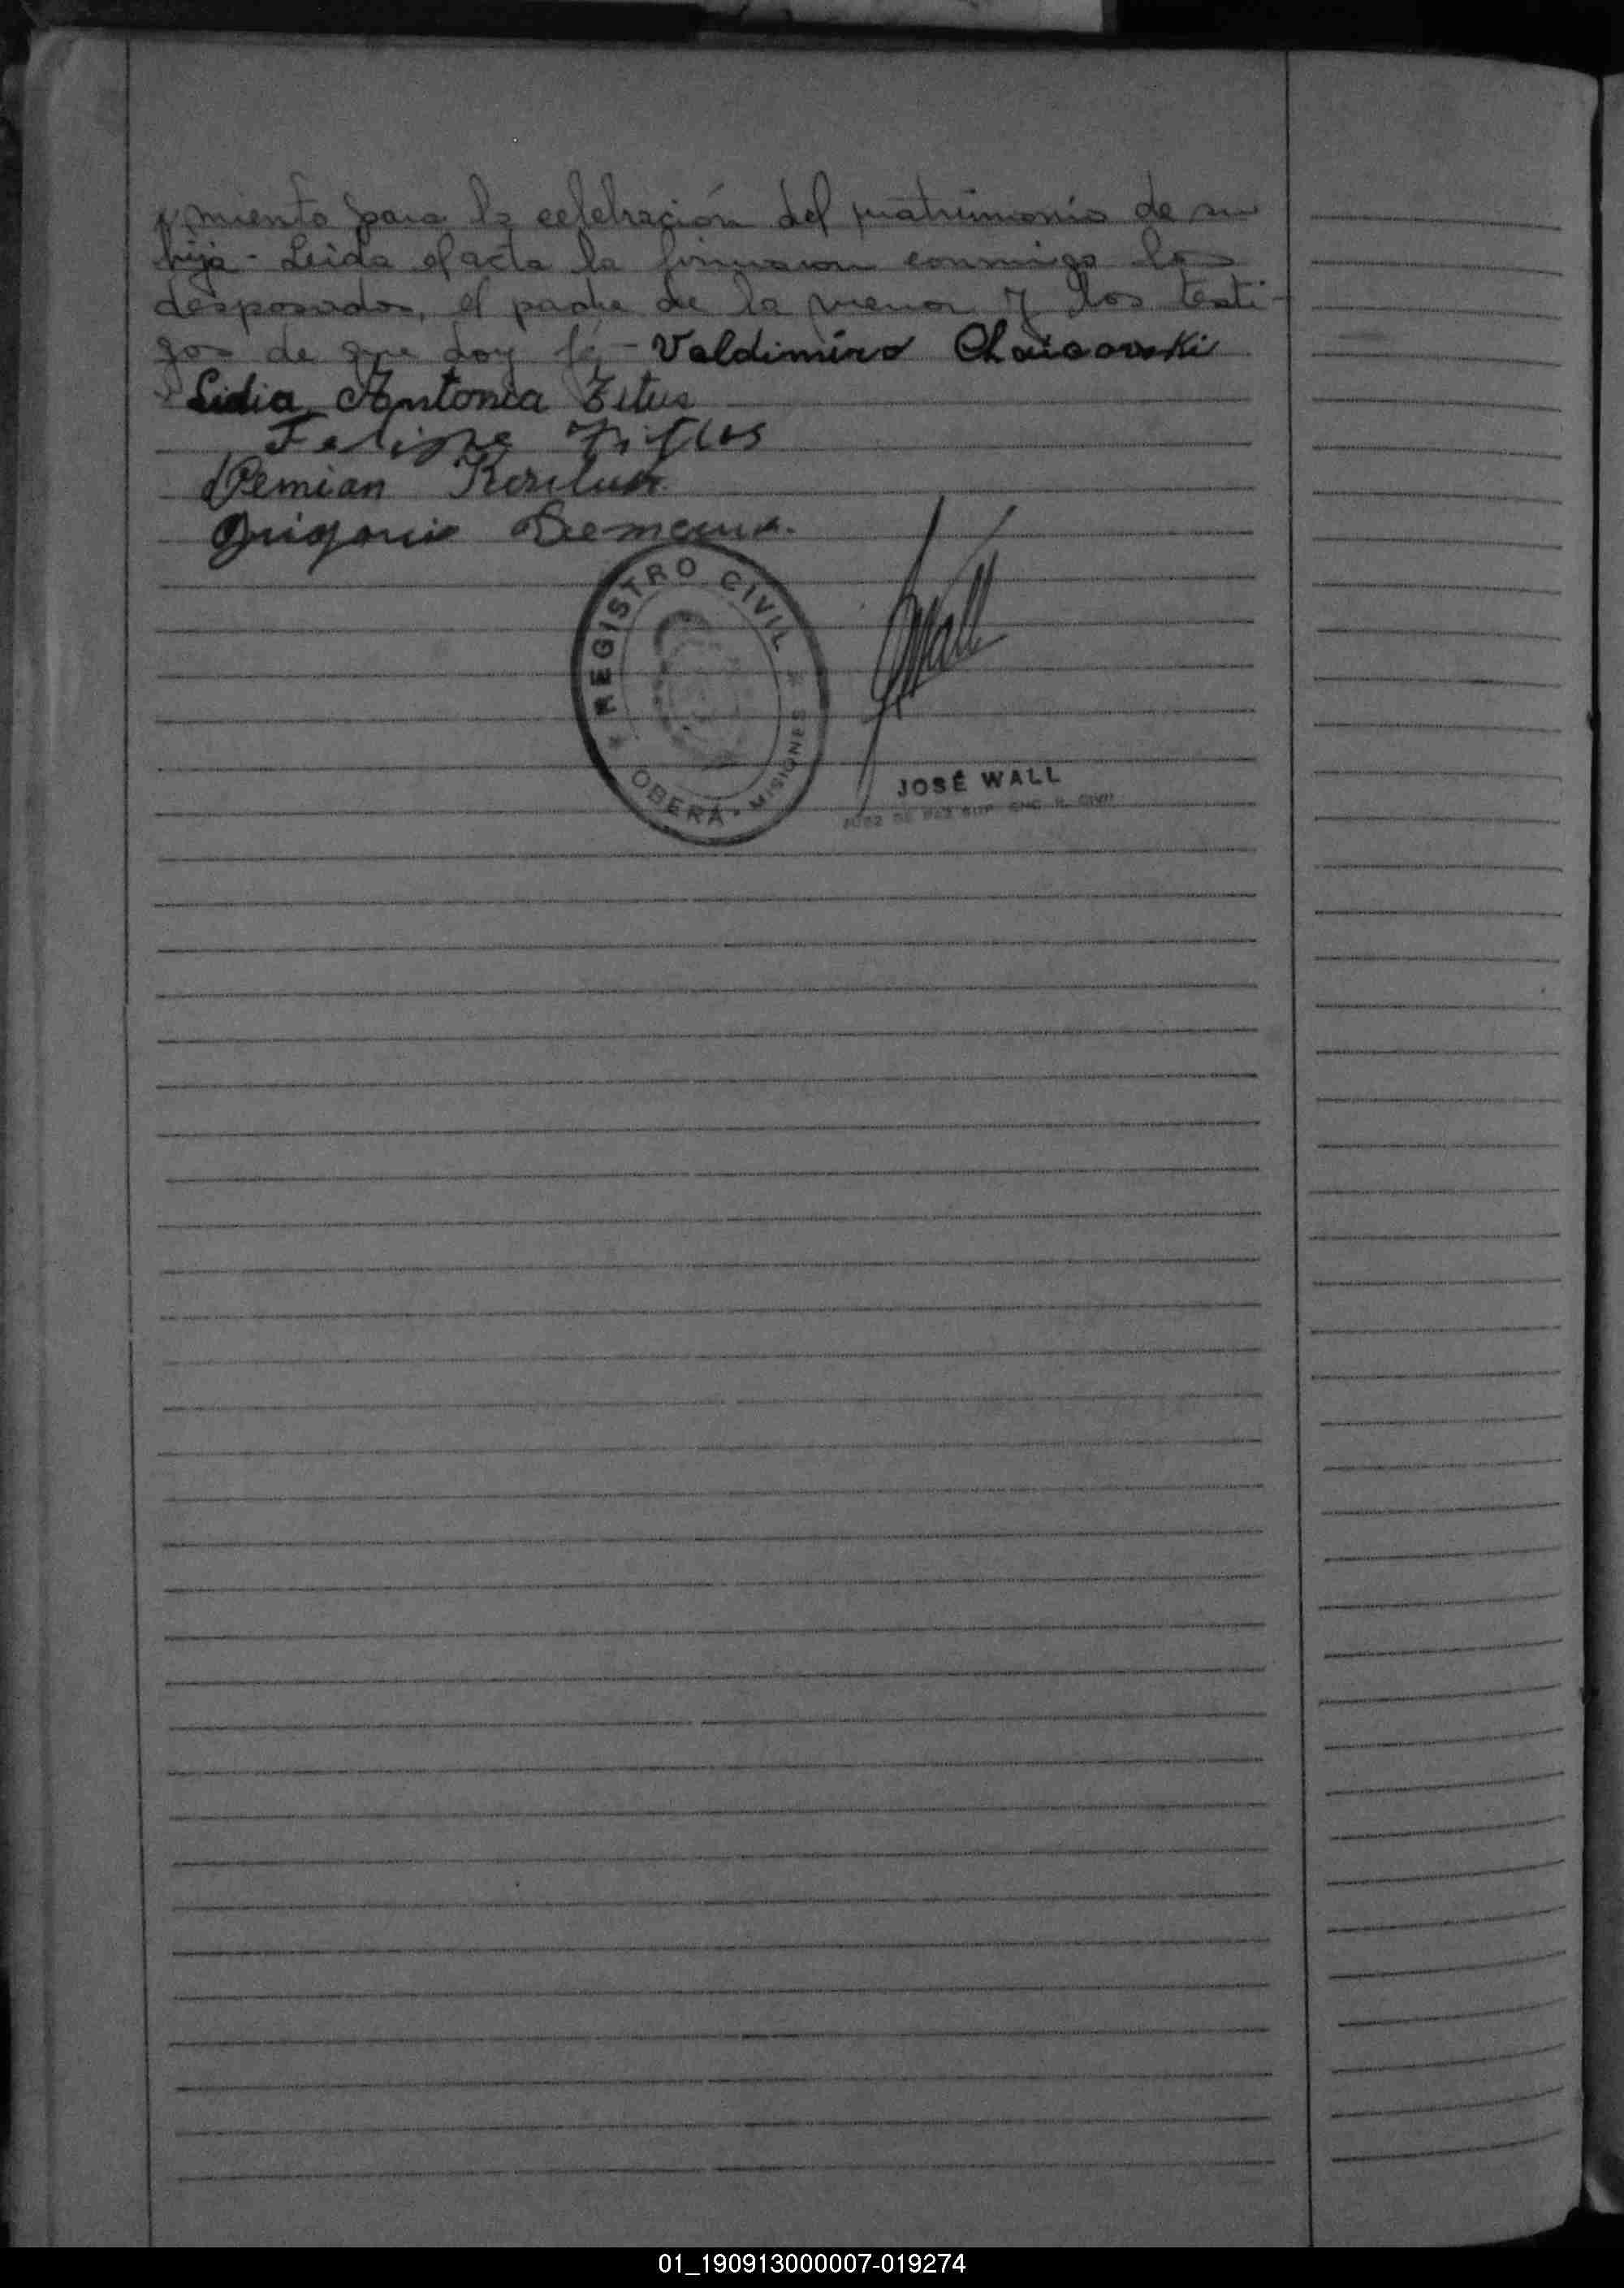 miento para la celebración del matrimonio de su
hija - Leida el acta la firmaron conmigo los
desposados, el padre de la menor y los testi-
gos de que doy fé - Valdimiro Chaicovski
Lidia Antonia Titus
Felipe
Demian
Grigorio
REGISTRO CIVIL
OBERÁ - MISIONES
JWall
JOSÉ WALL
JUEZ DE PAZ SUP. ENC. R. CIVIL
01_190913000007-019274